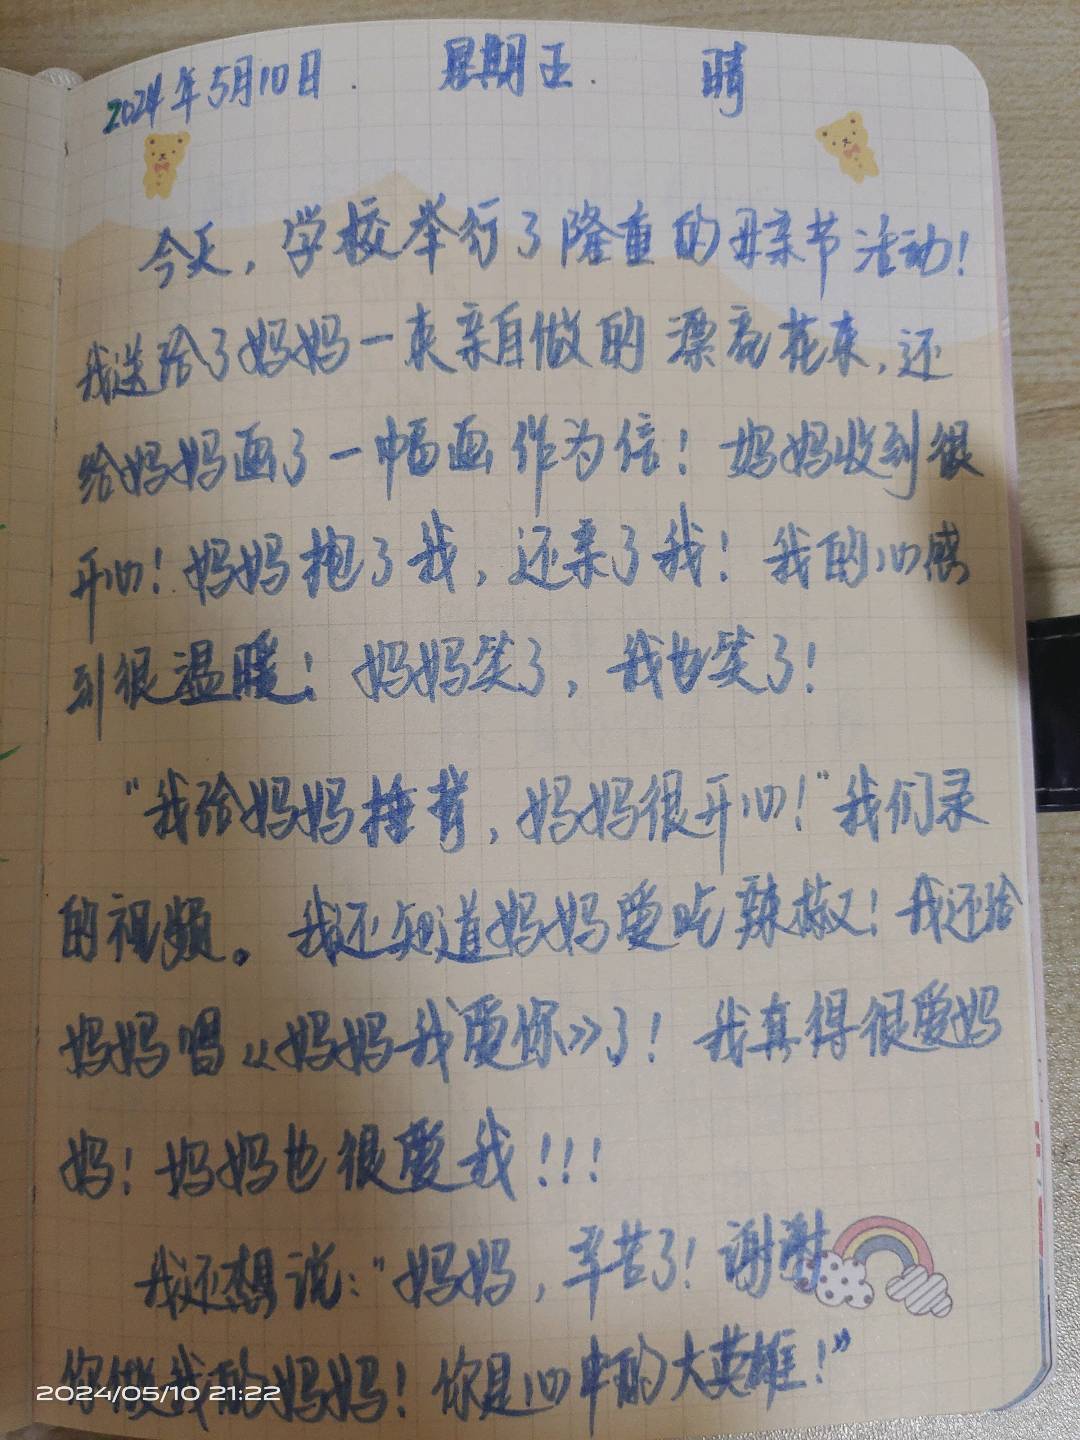 2024年5月10日. 星期五. 晴
今天，学校举行了隆重的母亲节活动！
我送给了妈妈一束亲自做的漂亮花束，还
给妈妈画了一幅画作为信！妈妈收到很
开心！妈妈抱了我，还亲了我！我的心感
到很温暖！妈妈笑了，我也笑了！
“我给妈妈捶背，妈妈很开心！”我们录
的视频。我还知道妈妈爱吃辣椒！我还给
妈妈唱《妈妈我爱你》了！我真得很爱妈
妈！妈妈也很爱我！！！
我还想说：“妈妈，辛苦了！谢谢
你做我的妈妈！你是心中的大英雄！”
2024/05/10 21:22